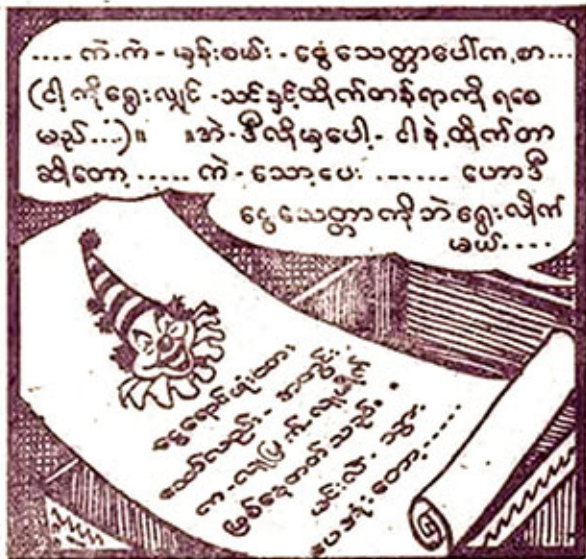 .... ကဲ-ကဲ- မှန်းစမ်း - ငွေသေတ္တာပေါ်က,စာ...
(ငါ့ကိုရွေးလျှင် -သင်နှင့်ထိုက်တန်ရာကိုရစေ
မည်...)။ ။အဲ-ဒီလိုမှပေါ့- ငါနဲ့ထိုက်တာ
ဆိုတော့ ..... ကဲ-သော့ပေး ...... ဟောဒီ
ငွေသေတ္တာကိုဘဲရွေးလိုက်
မယ်....
ငွေရောင်ဖုံးထား
သော်လည်း - အတွင်း
က - လူပြက်-လူပြိုင်
ဖြစ်နေတတ်သည်။
မင်းလဲ - သွား
ပေအုံးတော့.....